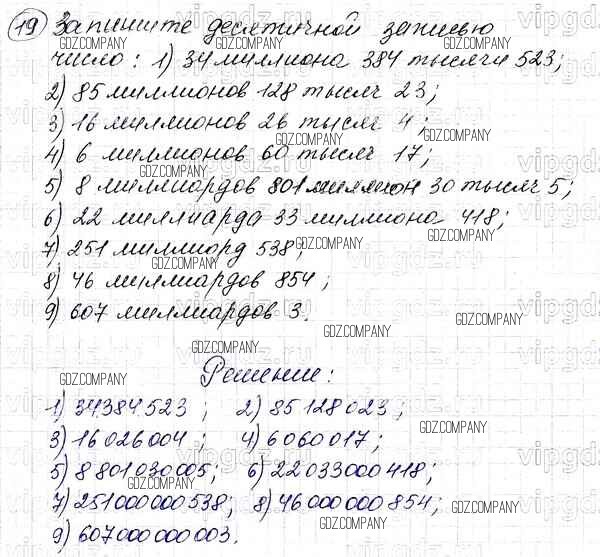 19 Запишите десятичной записью
число: 1) 34 миллиона 384 тысячи 523;
2) 85 миллионов 128 тысяч 23;
3) 16 миллионов 26 тысяч 4;
4) 6 миллионов 60 тысяч 17;
5) 8 миллиардов 801 миллион 30 тысяч 5;
6) 22 миллиарда 33 миллиона 418;
7) 251 миллиард 538;
8) 46 миллиардов 854;
9) 607 миллиардов 3.
Решение:
1) 34384523; 2) 85128023;
3) 16026004; 4) 6060017;
5) 8801030005; 6) 22033000418;
7) 251000000538; 8) 46000000854;
9) 607000000003.
GDZ.COMPANY
vipgdz.ru